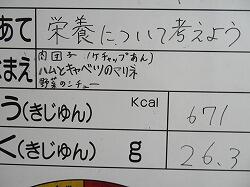 あて 栄養について考えよう
なまえ 肉団子(ケチャップあん)
ハムとキャベツのマリネ
野菜のシチュー
う(きじゅん) Kcal 671
く(きじゅん) g 26.3